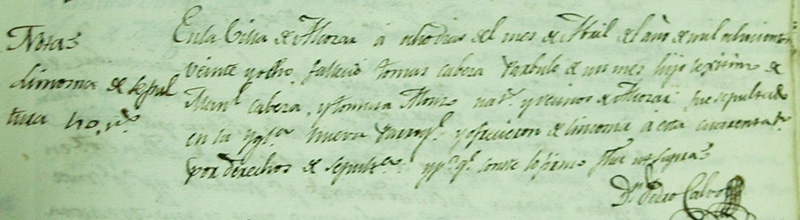 Notas
limosna de sepul
tura 40 r.s
En la Villa de Moral á ocho dias del mes de Abril del año de mil ochocientos
veinte y ocho, fallecio tomas cabeza Parbulo de un mes hijo lexitimo de
Man.l cabeza, y tomasa Alonso nat.s y vecinos de Moral fue sepultado
en la Ygl.a nueva Parroq.l y ofrecieron de limosna a esta cuarenta r.s
por derechos de sepult.a y p.a q.e conste lo firmo fha ut supra
D.n Pedro Calvo